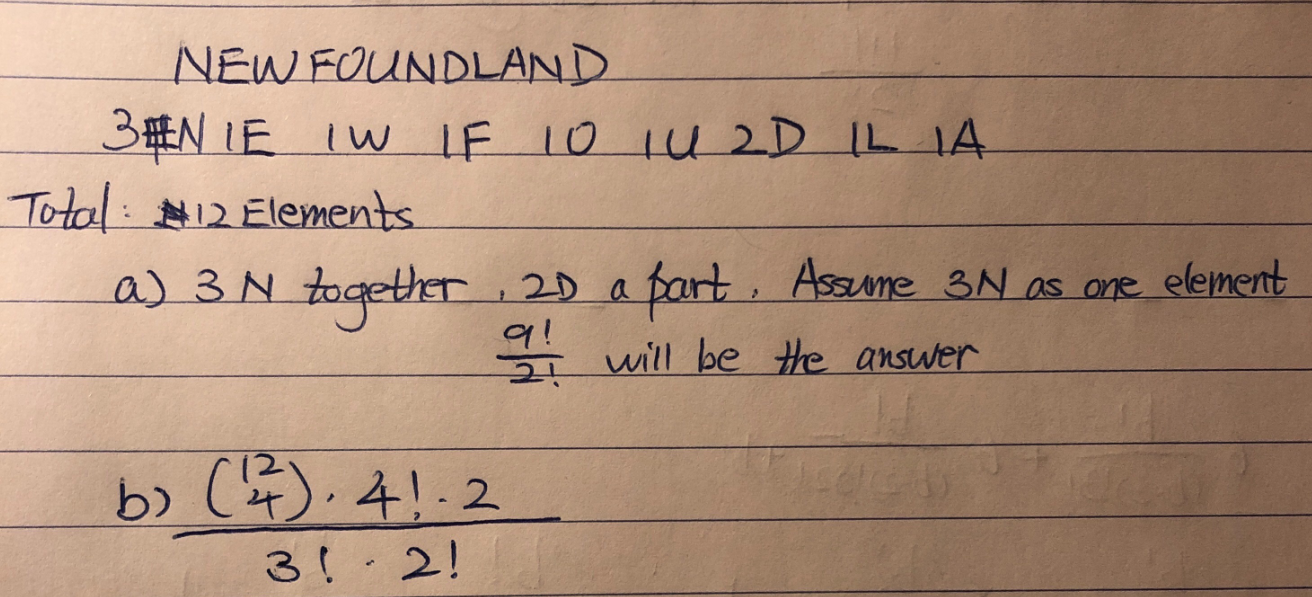 NEWFOUNDLAND
3N 1E 1W 1F 1O 1U 2D 1L 1A
Total: 12 Elements
a) 3N together, 2D a part. Assume 3N as one element
9!/2! will be the answer
b) (12 4) · 4! · 2
3! · 2!